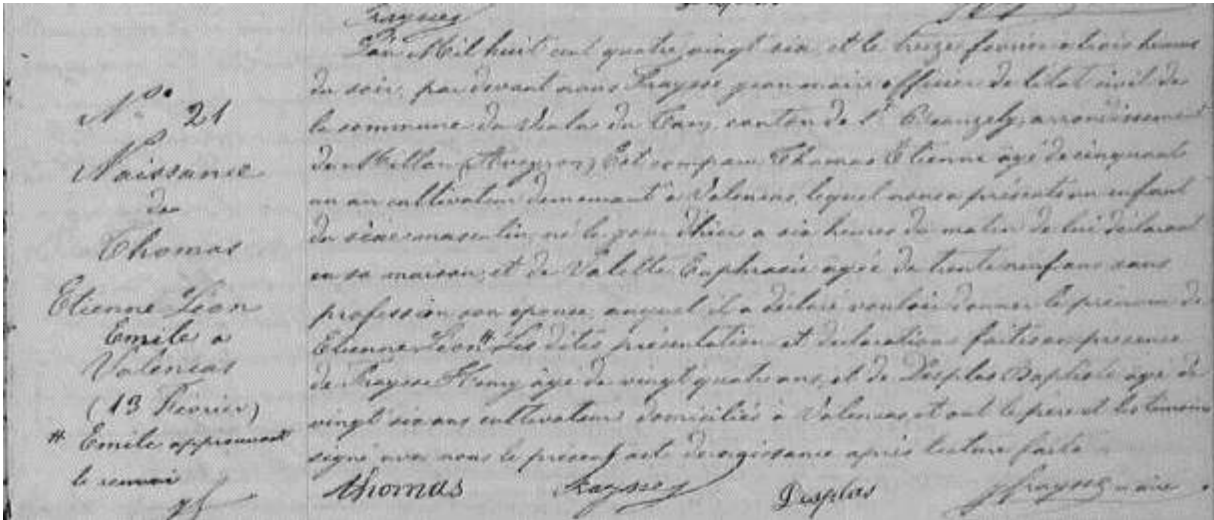 Fraysse
N° 21
Naissance
de
Thomas
Etienne Léon
Emile à
Valencas
(13 Février)
# Emile approuvant
le renvoi
L'an Mil huit cent quatre vingt six, et le treize fevrier a trois heures
du soir, par devant nous Fraysse jean maire officier de l'état civil de
la commune de Viala du Tarn, canton de St Beauzely, arrondissement
de Millau (Aveyron) Est comparu Thomas Etienne âgé de cinquante
un an cultivateur demeurant à Valencas, lequel nous a présenté un enfant
du sèxe masculin, né le jour d'hier a six heures du matin de lui déclarant
en sa maison, et de Valette Euphrasie âgée de trente neuf ans sans
profession son épouse, auquel il a déclaré vouloir donner le prénom de
Etienne Léon # Les dites présentation et déclarations faites en présence
de Fraysse Hemy âgé de vingt quatre ans, et de Desplas Baptiste âgé de
vingt six ans cultivateurs domiciliés à Valencas et ont le père et les témoins
signé avec nous le present acte de naissance après lecture faite
thomas Fraysse Desplas J Fraysse maire